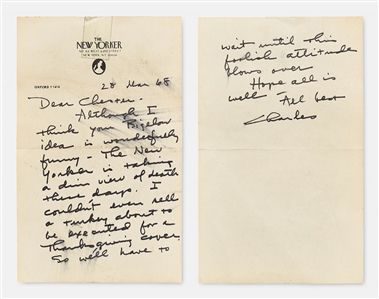 THE
NEW YORKER
NO. 25 WEST 43RD STREET
NEW YORK, N.Y. 10036
OXFORD 5-1414
28 Mar 68
Dear Chester -
Although I
think your Bigelow
idea is wonderfully
funny - The New
Yorker is taking
a dim view of death
these days. I
couldn't even sell
a turkey about to
be executed for a
Thanksgiving cover.
So we'll have to
wait until this
foolish attitude
blows over
Hope all is
well - All best
Charles